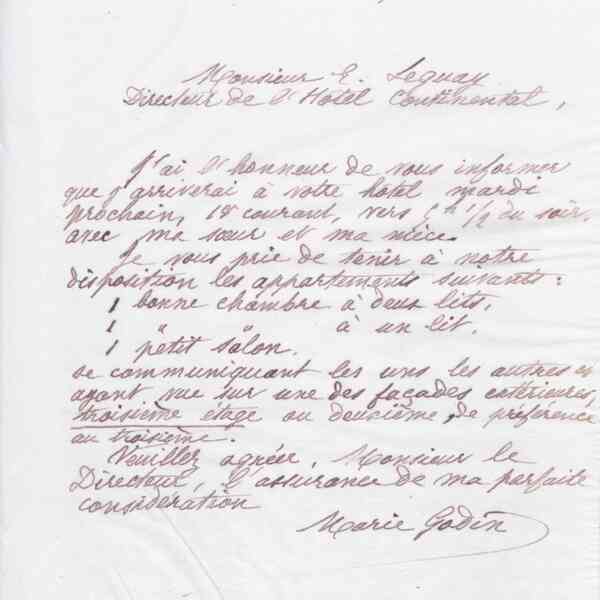 Monsieur E. Lequay
Directeur de l'Hotel Continental,
J'ai l'honneur de vous informer
que j'arriverai à votre hotel mardi
prochain, 18 courant, vers h 1/2 du soir,
avec ma sœur et ma nièce.
Je vous prie de tenir à notre
disposition les appartements suivants :
1 bonne chambre à deux lits,
1 " " à un lit.
1 petit salon.
se communiquant les uns les autres et
ayant vue sur une des façades extérieures,
troisième étage ou deuxième, de préférence
au troisième.
Veuillez agréer, Monsieur le
Directeur, l'assurance de ma parfaite
considération
Marie Godin